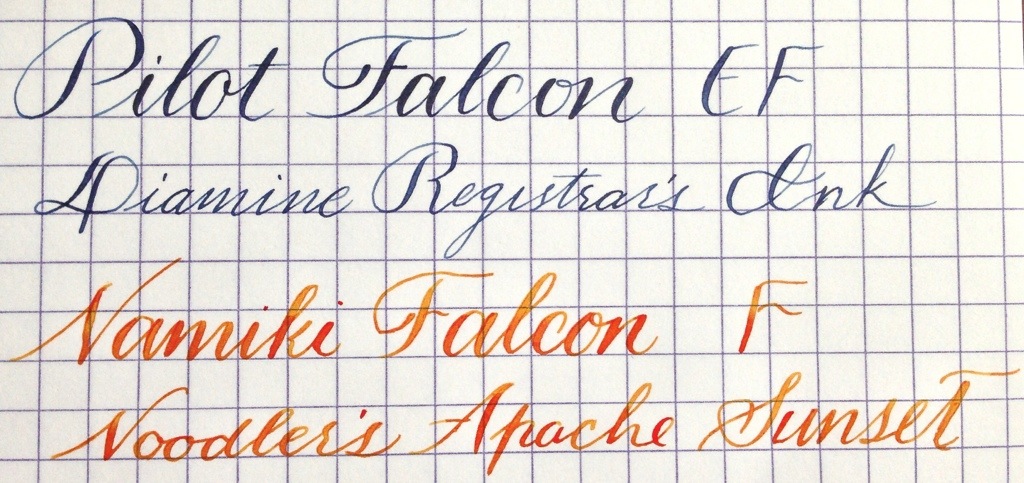 Pilot Falcon EF
Diamine Registrar's Ink
Namiki Falcon F
Noodler's Apache Sunset